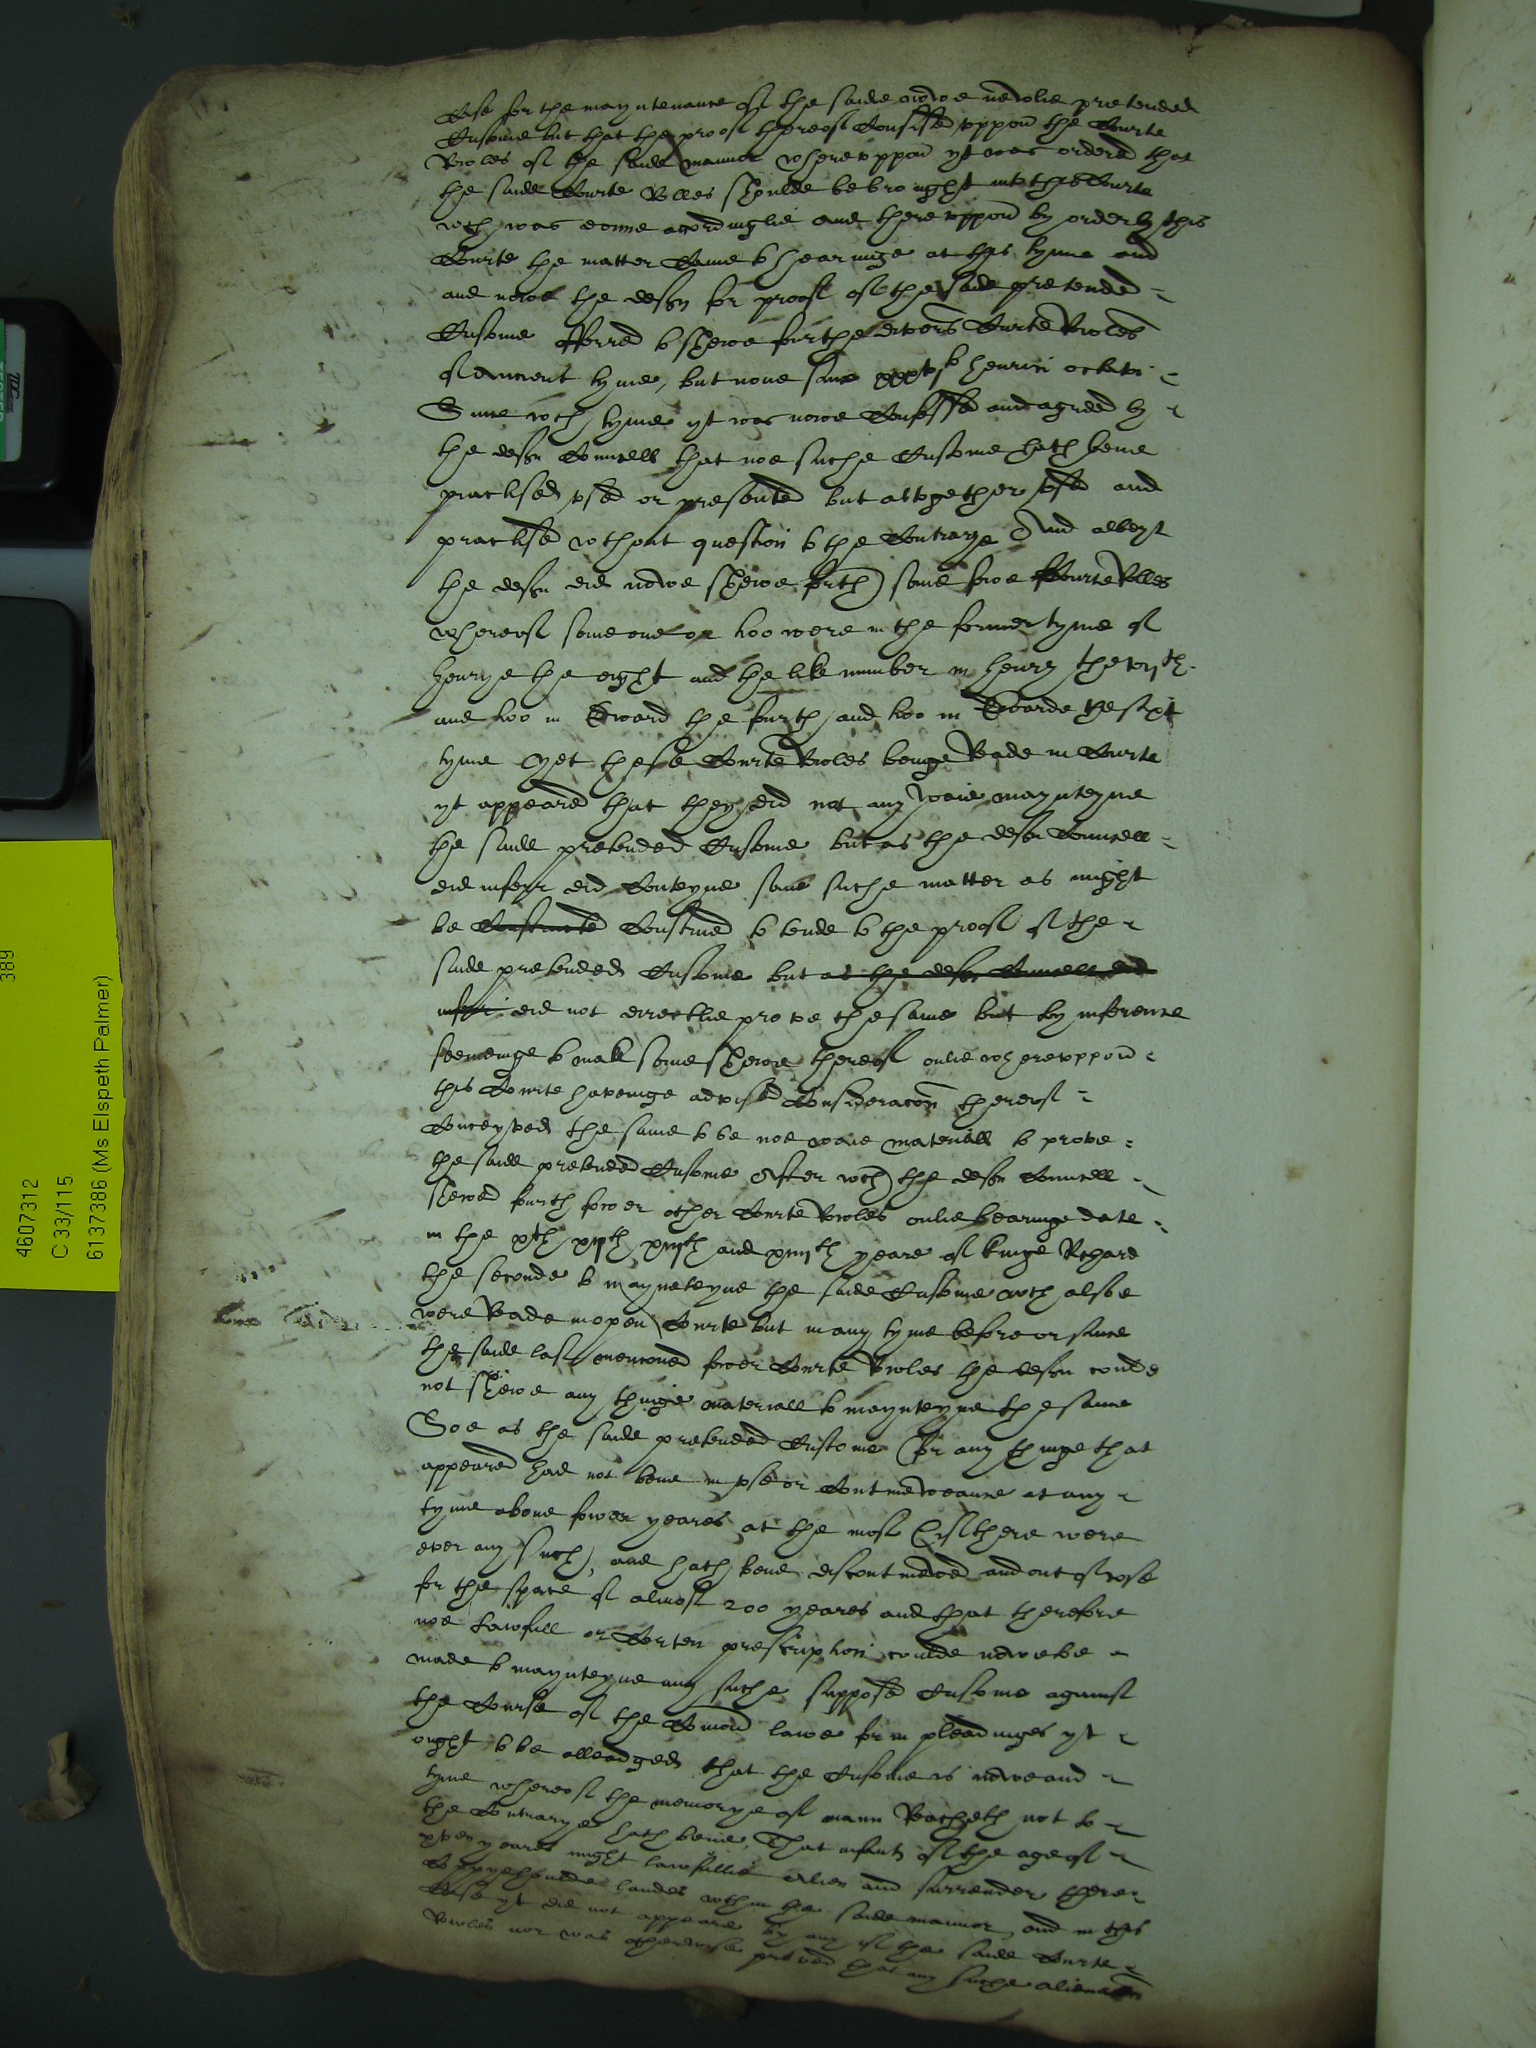 Case for the mayntenance of the saide nowe newlie pretended
Custome but that the proof thereof Consisted vppon the Courte
Rooles of the saide mannor wherevppon yt was ordered that
the saide Courte Rolles shoulde be brought into this Courte
wch was donne accordinglie and therevppon by order of this
Courte the matter Came to hearinge at this tyme and
and nowe the defen for proof of the saide pretended
Custome offerred to shewe furthe divers Courte Rooles
of Auncient tyme, but none since xxxvjto henrici octavi
Since wch tyme yt was nowe Confessed and agreed by
the defen Councell that noe suche Custome hath bene
practised vsed or presented but altogether vsed and
practised wthout question to the Contrarye And albeyt
the defen did nowe shewe forth some fewe Courte Rolles
whereof some one or too were in the former tyme of
henrye the eight and the like number in henry the vijth
and too in Edward the fourth and too in Edwarde the sixt
tyme Yet these Courte Rooles beinge Reade in Courte
yt appeared that they did not any waie maynteyne
the saide pretended Custome but as the defen Councell
did inferr did Conteyne some suche matter as might
be Constructed Construed to tende to the proof of the
saide pretended Custome but as the defen Councell did
inferr did not directlie prove the same but by inference
seeminge to make some shewe thereof onlie wherevppon
this Courte havinge advised Consideracon thereof
Conceyved the same to be noe waie materiall to prove
the saide pretended Custome After wch the defen Councell
shewed fourth fower other Courte Rooles onlie bearinge date
in the xth and yeare of kinge Richard
the seconde to mayneteyne the saide Custome wch alsoe
were Reade in open Courte but in any tyme before or since
the saide last mencioned fower Courte Rooles the defen coulde
not shewe any thinge materiall to maynteyne the same
Soe as the saide pretended Custome for any thinge that
appeared had not bene in vse or Contineweance at any
tyme above fower yeares at the most (if there were
ever any such) and hath bene discontinewed and out of vse
for the space of almost 200 yeares and that therefore
noe Lawfull or Certen prescription coulde nowe be
made to maynteyne any suche supposed Custome against
the Course of the Comon lawe for in pleadinges yt
ought to be alleadged that the Custome is nowe and
tyme whereof the memorye of mann Reacheth not to
the Contrarye hath bene, That infants of the age of
xven yeares might lawfullie alien and surrender there
Coppyehoulde landes wthin the saide mannor, and in this
Case yt did not appeare by any of the saide Courte
Rooles nor was otherwise proved that any suche alienacon
389
4607312
C 33/115
6137386 (Ms Elspeth Palmer)